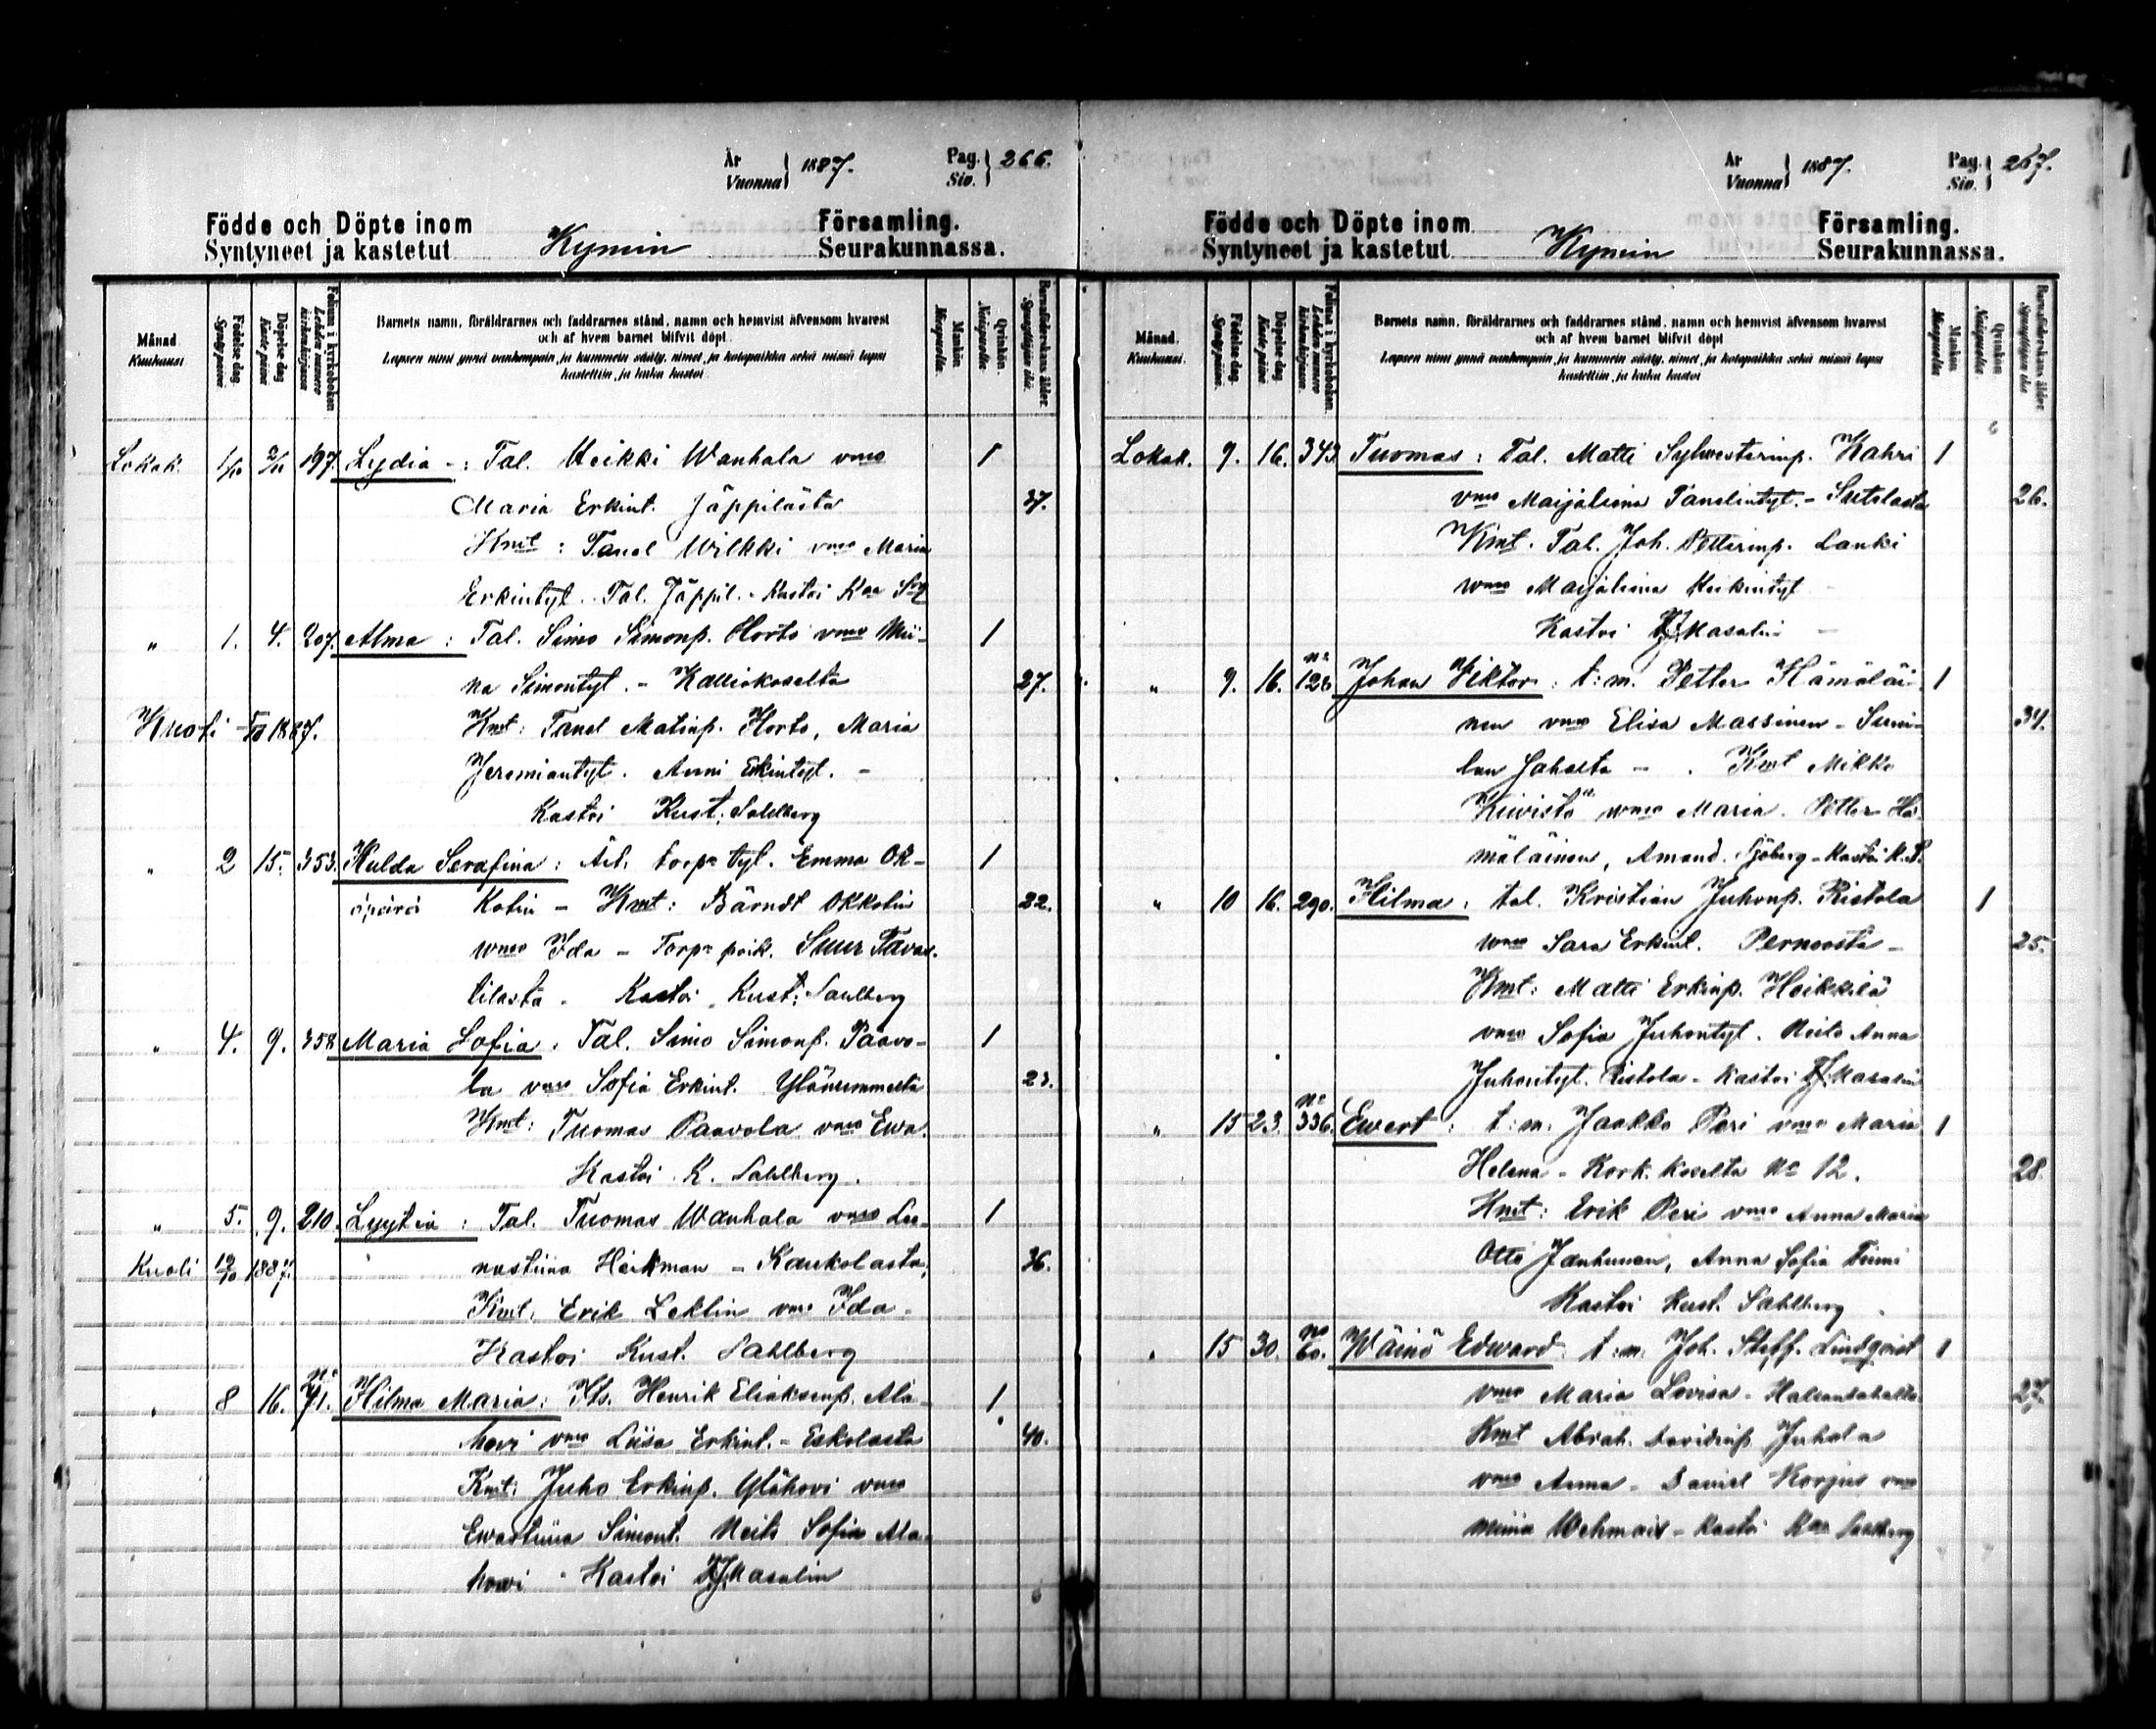 År Vuonna 1887. Pag. Siv. 266.
Födde och Döpte inom Församling.
Syntyneet ja kastetut Kymin Seurakunnassa.
Månad Kuukausi
Födelse dag Syntypäivä
Döpelse dag Kaste päivä
Folium i kyrkoboken Lehden numero kirkonkirjassa
Barnets namn, föräldrarnes och faddrarnes stånd, namn och hemvist äfvensom hvarest
och af hvem barnet blifvit döpt
Lapsen nimi ynnä vanhempain ja kummein sääty, nimet, ja kotopaikka sekä missä lapsi
kastettiin, ja kuka kastoi
Mankön Miespuolta
Qvinkön. Naispuolta
Barnaföderskans ålder. Synnyttäjän ikä.
Lokak. 1/10 2/10 197. Lydia : Tal. Heikki Wanhala vmo 1
Maria Erkint. Jäppilästä 37.
Kmt : Tanel Wilkki vmo Maria
Erkintyt. Tal. Jäppil. - Kastoi
" 1. 4. 207. Alma : Tal. Simo Simonp. Horto vmo Mii- 1
na Simontyt. - Kalliokoselta 27.
Kuoli 1887. Kmt : Tanel Matinp. Horto, Maria
Jeremiantyt. Anni Erkintyt. -
Kastoi Kust. Sahlberg
" 2 15. 353. Hulda Serafina : Ait. torp. tyt. Emma Ok- 1
äpärä Kolin - Kmt : Bärndt Okkolin 22.
wmo Ida - Torp. poik. Suur Tavas-
tilasta - Kastoi Kust. Sahlberg
" 4. 9. 358 Maria Sofia : Tal. Simo Simonp. Paavo- 1
la vmo Sofia Erkint. Ylänummesta 23.
Kmt : Tuomas Paavola vmo Ewa.
Kastoi K. Sahlberg.
" 5. 9. 210. Lyytia : Tal. Tuomas Wanhala vmo Lee- 1
Kuoli 12/10 1887. nastiina Heikman - Kaukolasta, 36.
Kmt. Erik Leklin vmo Ida -
Kastoi Kust. Sahlberg
" 8 16. No 71. Hilma Maria : Its. Henrik Eliaksenp. Ala- 1
hovi vmo Liisa Erkint. - Eskolasta 40.
Kmt: Juho Erkinp. Ylähovi vmo
Ewastiina Simont. Neits Sofia Ala-
howi - Kastoi Masalin
År Vuonna 1887. Pag. Siv. 267.
Födde och Döpte inom Församling.
Syntyneet ja kastetut Kymin Seurakunnassa.
Månad. Kuukausi.
Födelse dag. Syntypäivä.
Döpelse dag Kaste päivä
Folium i kyrkoboken. Lehden numero kirkonkirjassa.
Barnets namn, föräldrarnes och faddrarnes stånd, namn och hemvist äfvensom hvarest
och af hvem barnet blifvit döpt
Lapsen nimi ynnä vanhempain ja kummein sääty, nimet, ja kotopaikka sekä missä lapsi
kastettiin, ja kuka kastoi
Mankön Miespuolta
Qvinkön Naispuolta
Barnaföderskans ålder Synnyttäjän ikä
Lokak. 9. 16. 343. Tuomas : Tal. Matti Sylwesterinp. Kahri 1
vmo Maijaliina Tanelintyt. - Sutelasta 26.
Kmt. Tal. Joh. Petterinp. Lanki
wmo Maijaliina Heikintyt -
Kastoi Masalin -
" 9. 16. No 128 Johan Viktor : t:m. Petter Hämäläi- 1
nen vmo Elisa Massinen - Suni- 34.
lan Sahalta - Kmt Mikko
Kiwistö wmo Maria. Petter Hä-
mäläinen, Amand. Sjöberg - Kastoi K. S.
" 10 16. 290. Hilma : tal. Kristian Juhonp. Ristola 1
wmo Sara Erkint. Pernoosta - 25.
Kmt : Matti Erkinp. Heikkilä
vmo Sofia Juhontyt. Neits Anna
Juhontyt. Ristola - Kastoi Masalin
" 15 23. No 336. Ewert : t:m. Jaakko Peri vmo Maria 1
Helena - Kork. koselta No 12. 28.
Kmt : Erik Peri vmo Anna Maria
Otto Janhunen, Anna Sofia
Kastoi Kust. Sahlberg
" 15 30. No 60. Wäinö Edward. t:m. Joh. Steff. Lindqvist 1
vmo Maria Lovisa - 27.
Kmt Abrah. Davidinp. Juhala
vmo Anna - Daniel Korjus vmo
Miina - Kastoi Sahlberg